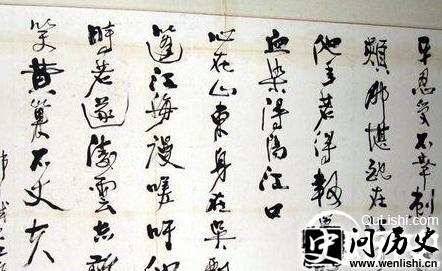 牙忍受不幸刺
頰那堪配在
他年若得報
血染潯陽江口
心在山東身在吳飄
蓬江海謾嗟吁他
時若遂凌雲志敢
笑黃巢不丈夫
QuLishi.com
问历史
www.wenlishi.com